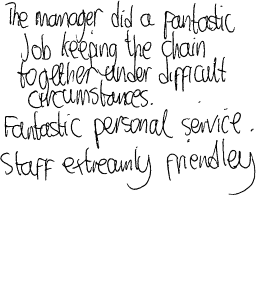 The manager did a fantastic
Job keeping the chain
together under difficult
circumstances.
Fantastic personal service.
Staff extreamly friendley